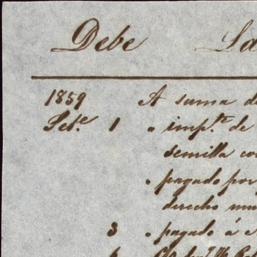 Debe La
1859 A suma de
Sete. 1 " impte. de
semilla co
" pagado por
derecho mu
3 " pagado á